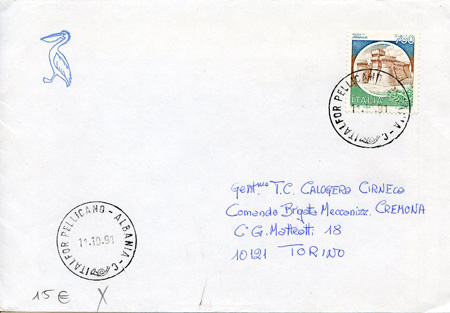 750
ITALIA
ITALFOR PELLICANO - ALBANIA - C -
11.10.91
Gent.mo T.C. CALOGERO CIRNECO
Comando Brigata Meccanizz. CREMONA
C. G. Matteotti 18
10121 TORINO
ITALFOR PELLICANO - ALBANIA - C -
11.10.91
15 € X